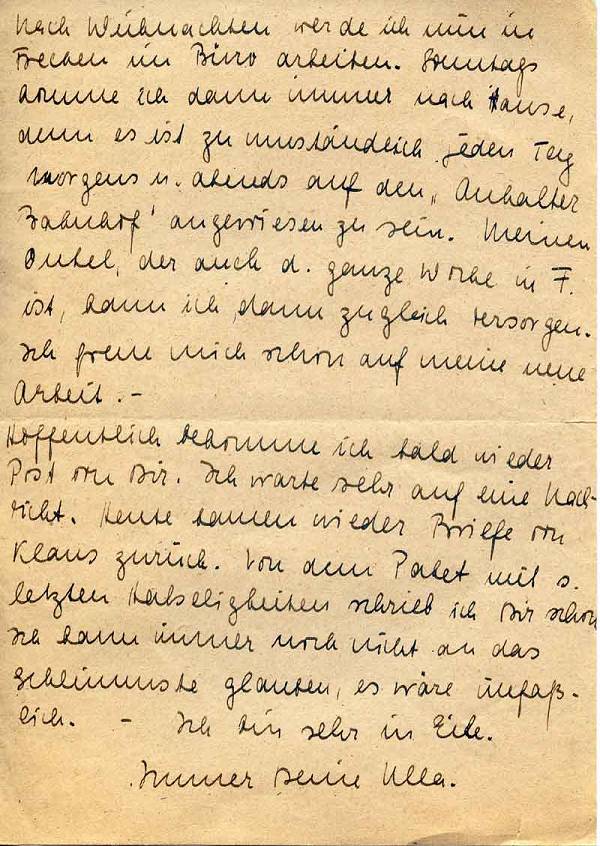 Nach Weihnachten werde ich nun in
Frechen im Büro arbeiten. Sonntags
komme ich dann immer nach Hause,
denn es ist zu umständlich jeden Tag
morgens u. abends auf den „Anhalter
Bahnhof" angewiesen zu sein. Meinen
Onkel, der auch d. ganze Woche in F.
ist, kann ich dann zugleich versorgen.
Ich freue mich schon auf meine neue
Arbeit. -
Hoffentlich bekomme ich bald wieder
Post von Dir. Ich warte sehr auf eine Nach-
richt. Heute kamen wieder Briefe von
Klaus zurück. Von dem Paket mit s.
letzten Habseligkeiten schrieb ich Dir schon
Ich kann immer noch nicht an das
schlimmste glauben, es wäre unfaß-
lich. - Ich bin sehr in Eile.
Immer Deine Ulla.